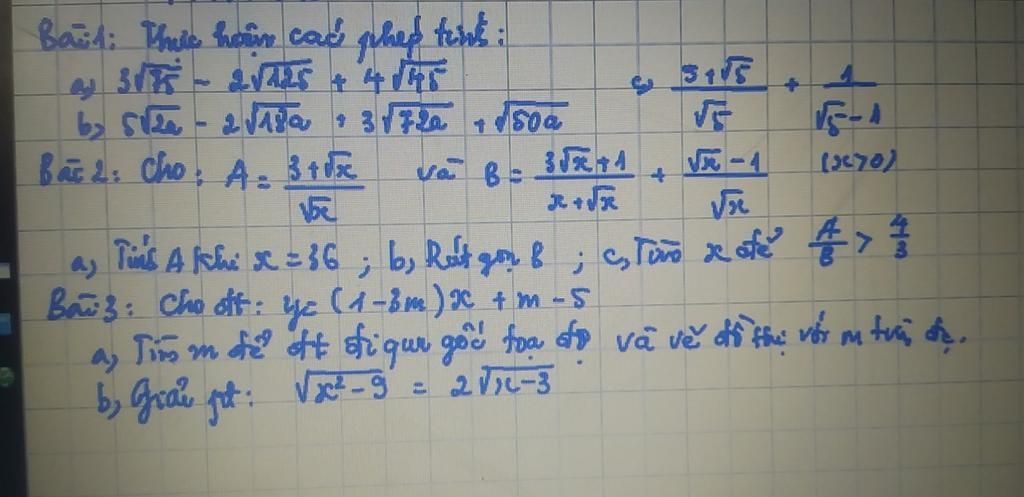 Bài 1: Thực hiện các phép tính:
a, 3√75 - 2√125 + 4√45 c, (3+√5)/√5 + 1/(√5-1)
b, 5√2a - 2√18a + 3√72a + √50a
Bài 2: Cho: A = (3+√x)/√x và B = (3√x+1)/(x+√x) + (√x-1)/√x (x>0)
a, Tính A khi x = 36 ; b, Rút gọn B ; c, Tìm x để A/B > 4/3
Bài 3: Cho đt: y = (1-3m)x + m - 5
a, Tìm m để đt đi qua gốc tọa độ và vẽ đồ thị với m tìm đc.
b, Giải pt: √x²-9 = 2√x-3